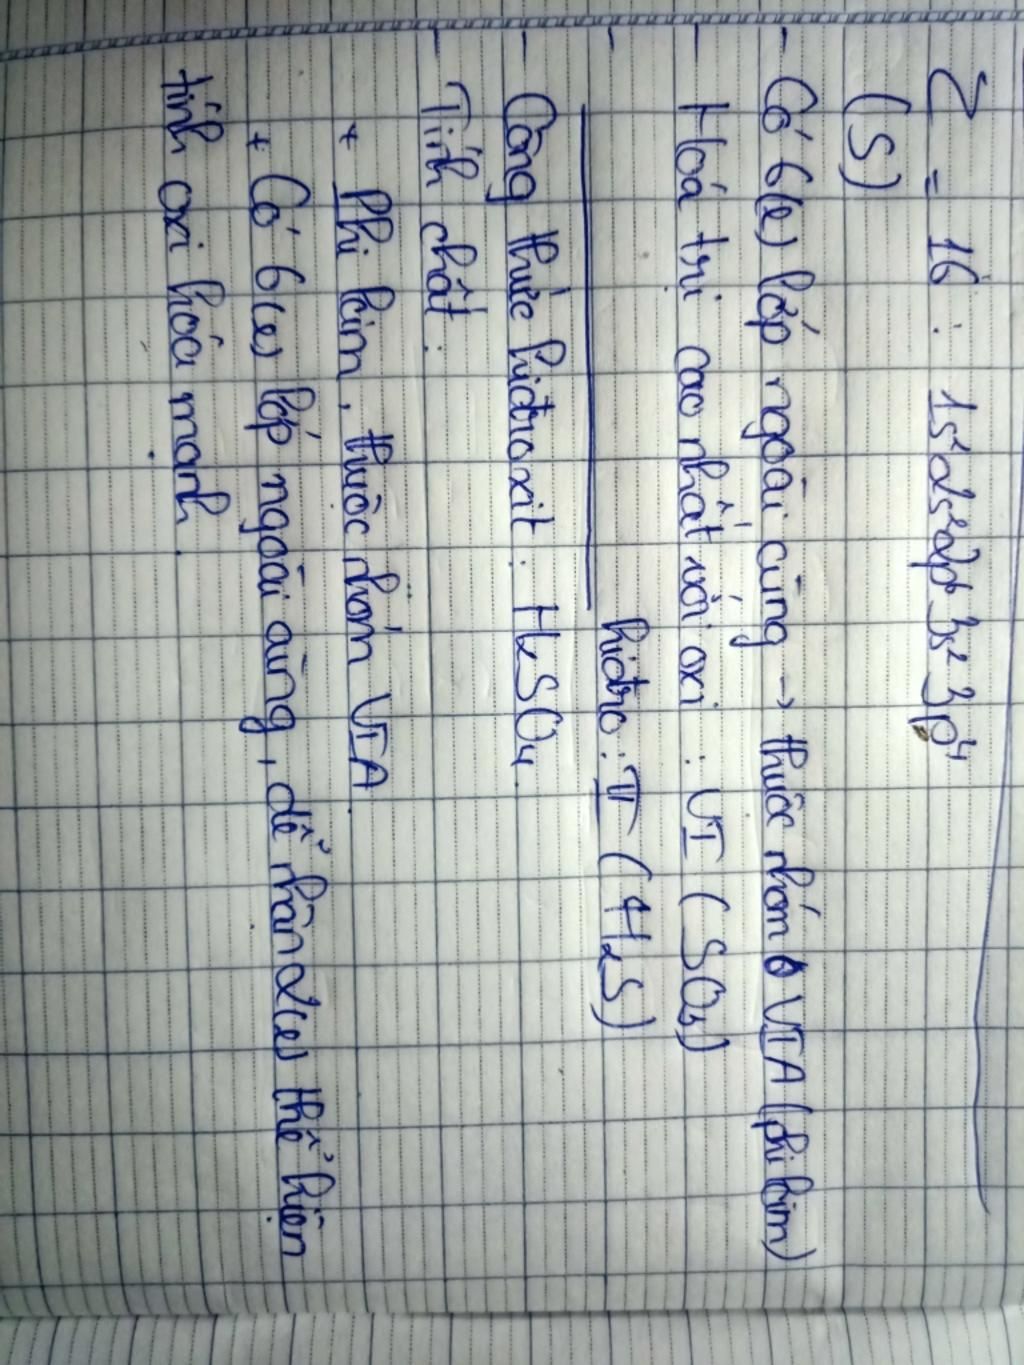 Z = 16 : 1s²2s²2p⁶3s²3p⁴
(S)
- Có 6(e) lớp ngoài cùng → thuộc nhóm VIA (phi kim)
- Hoá trị cao nhất với oxi : VI (SO₃)
- hiđro : II (H₂S)
- Công thức hiđroxit : H₂SO₄.
- Tính chất :
+ Phi kim, thuộc nhóm VIA.
+ Có 6(e) lớp ngoài cùng, dễ nhận 2(e) thể hiện
tính oxi hóa mạnh.